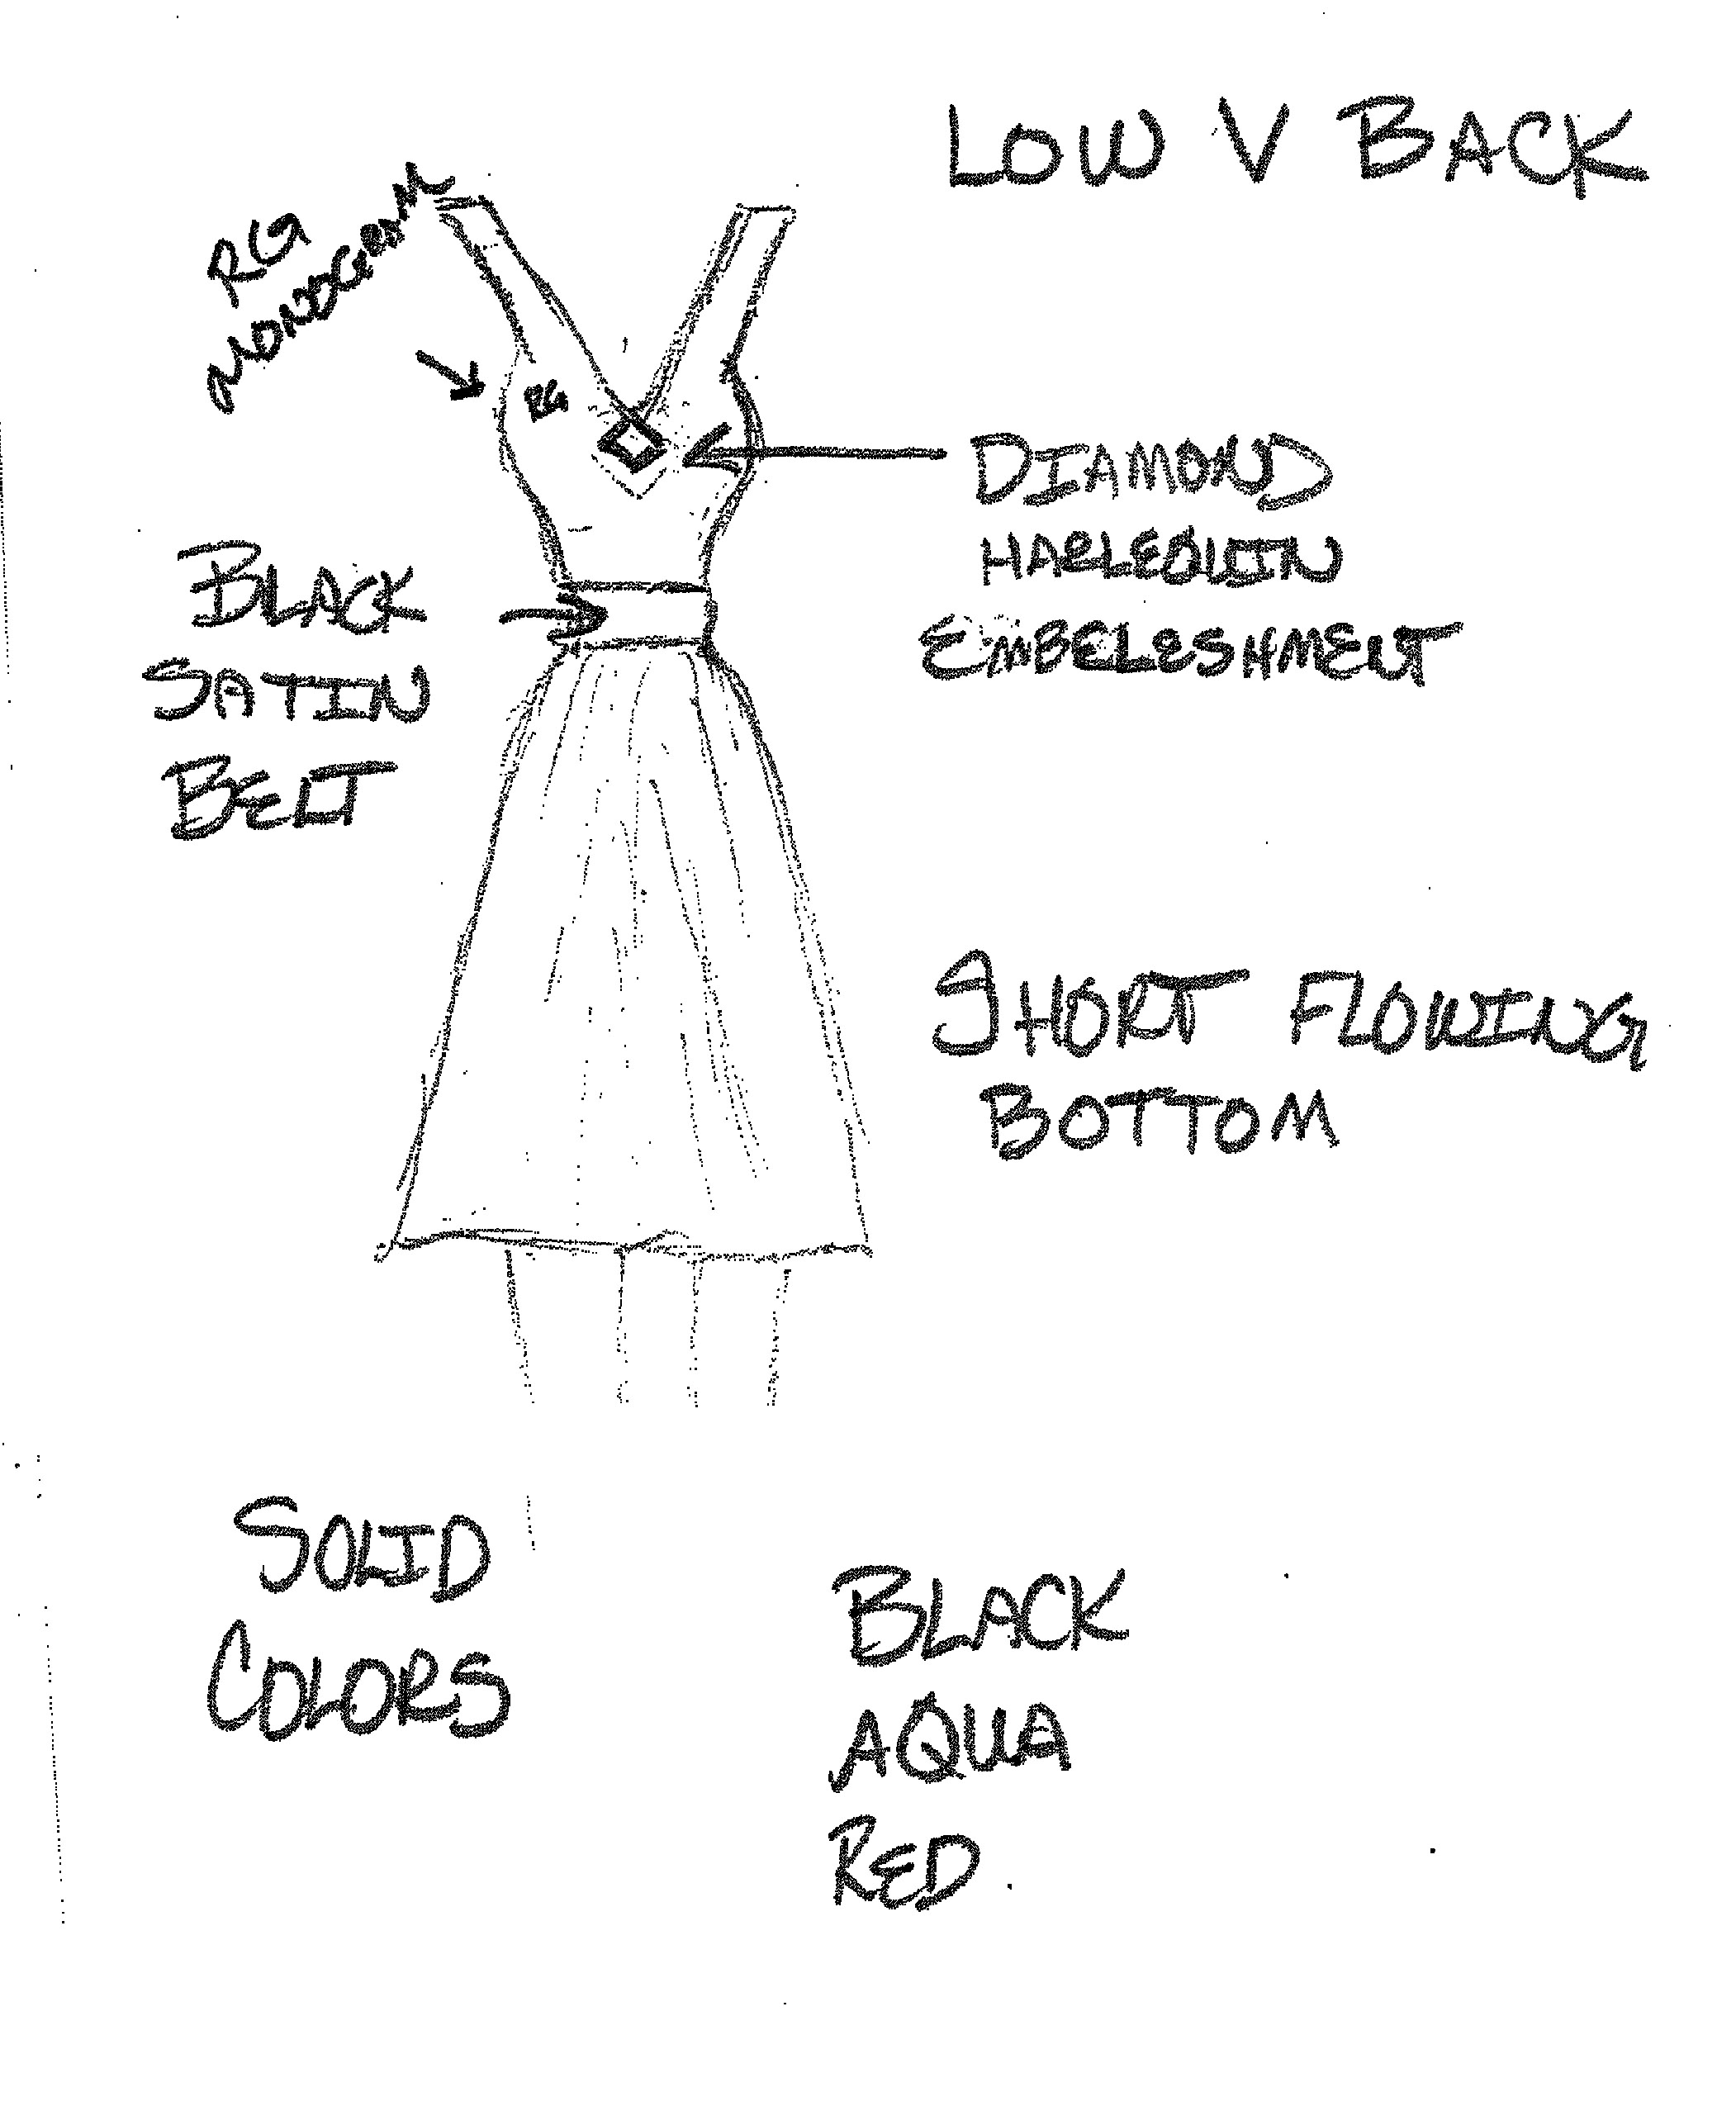 LOW V BACK
RG
MONOGRAM
RG
DIAMOND
HARLEQUIN
EMBELESHMENT
BLACK
SATIN
BELT
SHORT FLOWING
BOTTOM
SOLID
COLORS
BLACK
AQUA
RED